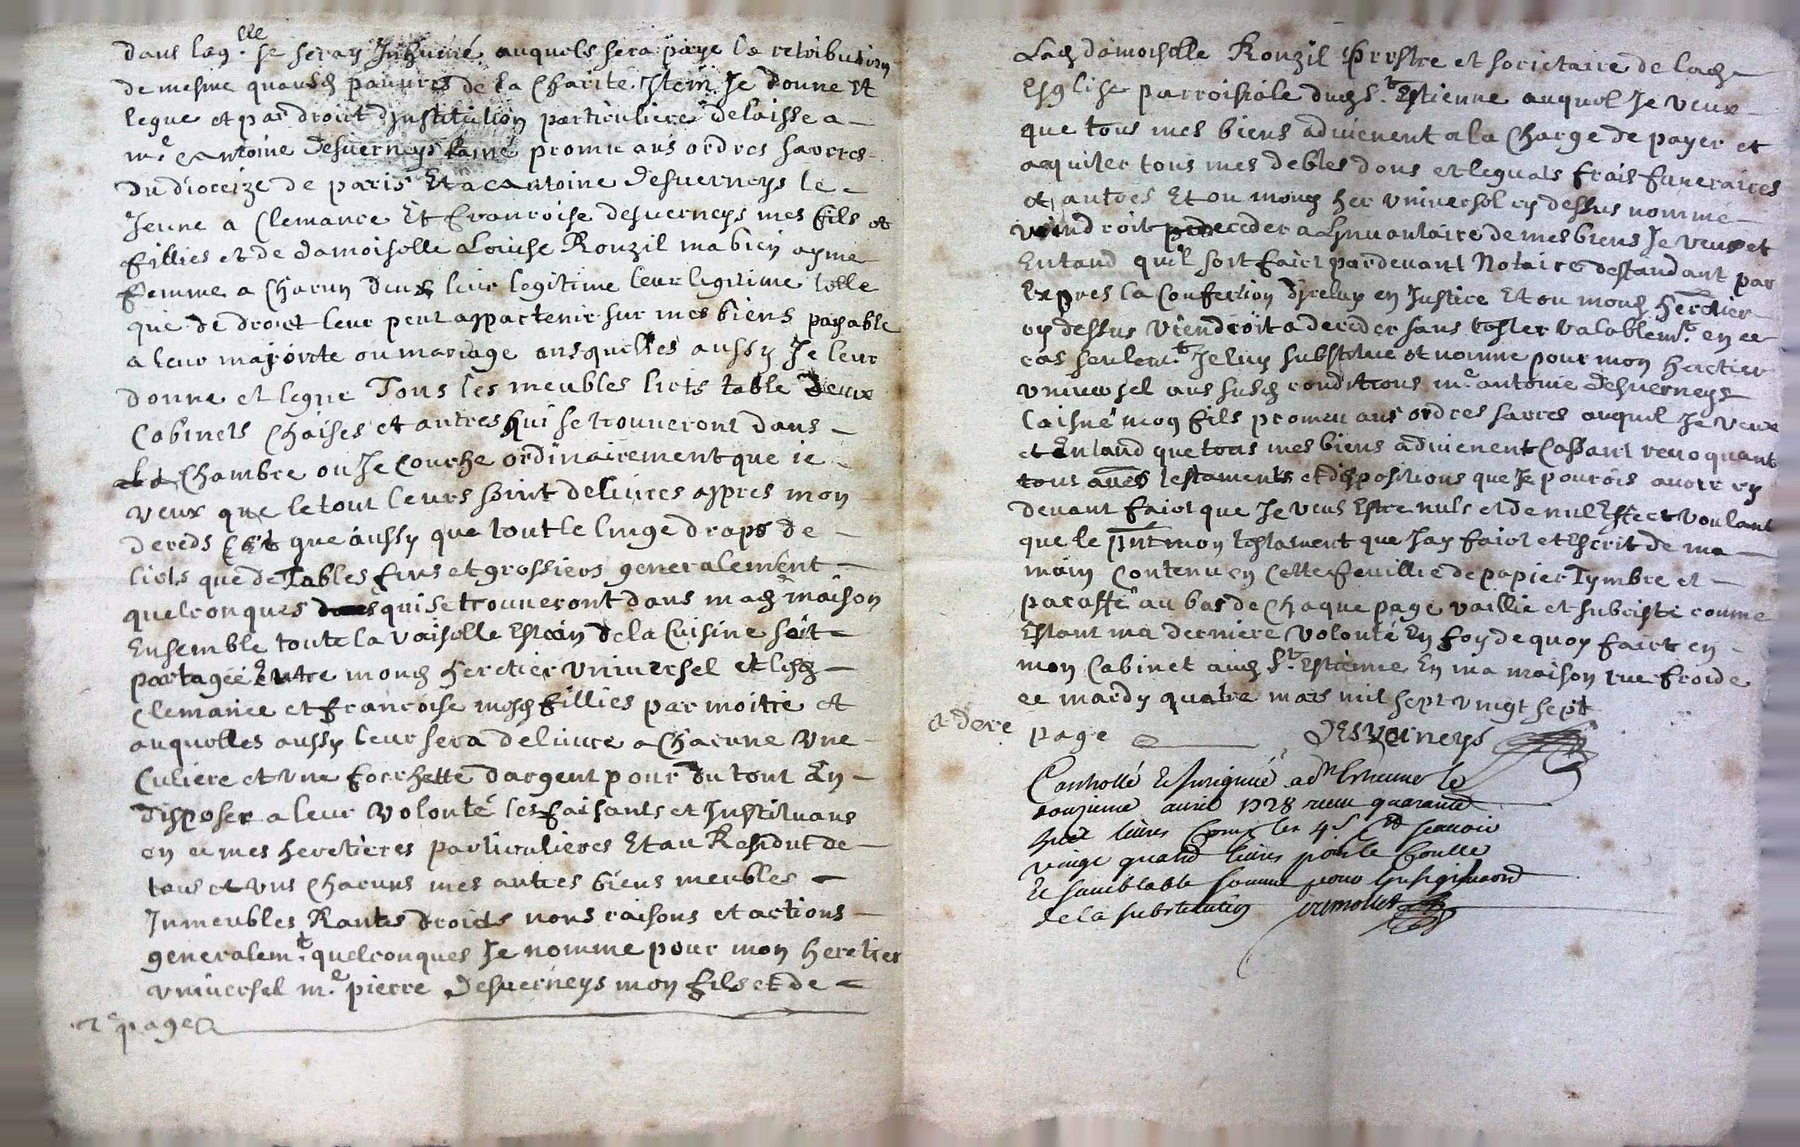 dans laq.lle je seray Inhumé auquels sera paye la retribution
de mesme quausd pauures de la Charité Item Je donne Et
legue et par droit dJnstitution particuliere delaisse a
m.e Antoine Desuerneys Laine promu aus ordres sacres
du dioceize de paris Et a antoine desuerneys le
Jeune a Clemance Et francoise desuerneys mes fils et
fillies et de damoiselle Louise Rouzil ma bien ayme
femme a Chacun deux leur legitime telle
que de droict leur peut appartenir sur mes biens payable
a leur majorite ou mariage ausquelles aussy Je leur
donne et legue Tous les meubles licts table deux
Cabinets Chaises et autres qui se trouueront dans
la Chambre ou Je Couche ordinairement que ie
veux que le tout leurs soint deliures appres mon
dereds que aussy que tout le linge draps de
licts que de Tables fins et grossiers generalement
quelconques qui se trouueront dans mad maison
Ensemble toute la vaiselle Estain de la Cuisine soit
partagée Entre mond heretier vniuersel et lesd
Clemance et francoise mesd fillies par moitie et
auquelles aussy leur sera deliure a Chacune vne
Culiere et vne forchette dargent pour du tout En
disposer a leur volonté les faisants et Instituans
en ce mes heretieres particulieres Et au Residut de
tous et vns Chacuns mes autres biens meubles
Inmeubles Rantes droicts noms raisons et actions
generalem.t quelconques Je nomme pour mon heretier
vniuersel m.e pierre Desuerneys mon fils et de
2e page
Lad damoiselle Rouzil prestre et societaire de lad
Esglise parroisiale dud S.t Estienne auquel Je veux
que tous mes biens aduienent a la Charge de payer et
aquiter tous mes debtes dons et leguats frais funeraires
et autres Et ou mond her vniuersel cy dessus nommé
viendroit proceder a Linuantaire de mes biens Je veux et
Entand quil soit faict pardeuant Notaire deffandant par
Expres la Confection dicelluy en Justice Et ou mond heretier
cy dessus viendroit a deceder sans tester valablem.t en ce
cas seulem.t Je luy substitue et nomme pour mon heretier
vniuersel aus susd conditions m.e antoine desuerneys
laisne mon fils promeu aus ordres sacres auquel Je veux
et Entand que tous mes biens aduienent Cassant reuoquant
tous autres testaments et dispositions que Je pourois auoir cy
deuant faict que Je veus Estre nuls et de nul Effect voulant
que le pnt mon testament que Jay faict et Escrit de ma
main Contenu en Cette feuillie de papier Tymbre et
paraffé au bas de Chaque page vaillie et subciste comme
Estant ma derniere volonté En foy de quoy faict en
mon Cabinet aud S.t Estienne En ma maison rue froide
ce mardy quatre mars mil sept vingt sept
page
DESVerneys
Controllé Et Insinué a St Estienne le
avril 1728 receu quarante
huit liures Compris les 4 s.
vingt quatre liures pour le Controlle
Et semblable somme pour
de la substitution